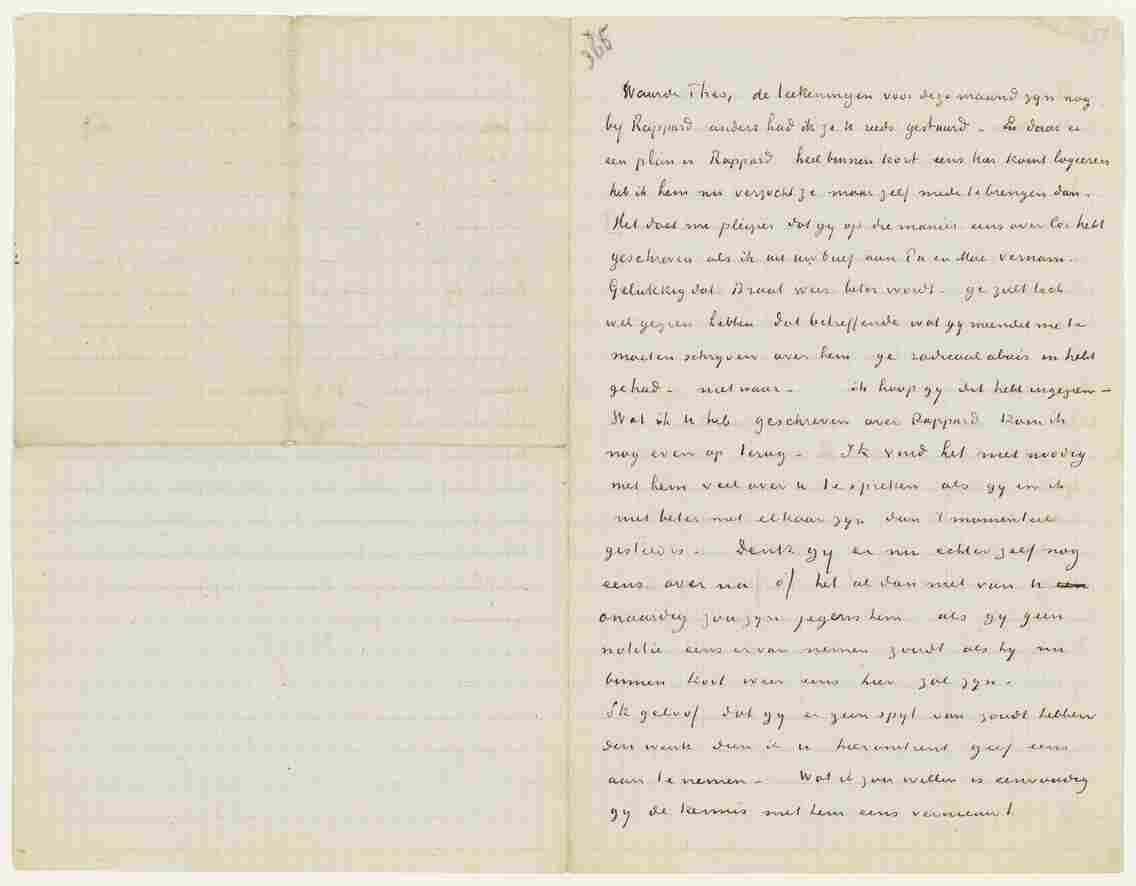 366
Waarde Theo, de teekeningen voor deze maand zyn nog
by Rappard anders had ik ze U reeds gestuurd. En daar er
een plan is Rappard heel binnen kort eens hier komt logeeren
heb ik hem nu verzocht ze maar zelf mede te brengen dan.
Het doet me pleizier dat gy op die manier eens over Cor hebt
geschreven als ik uit uw brief aan Pa en Moe vernam.
Gelukkig dat Braat weer beter wordt. ge zult toch
wel gezien hebben dat betreffende wat gy meendet me te
moeten schryven over hem ge radicaal abuis in hebt
gehad. niet waar. ik hoop gy dit hebt ingezien –
Wat ik U heb geschreven over Rappard kom ik
nog even op terug. Ik vind het niet noodig
met hem veel over U te spreken als gy en ik
niet beter met elkaar zyn dan 't momenteel
gesteld is. Denk gy er nu echter zelf nog
eens over na of het al dan niet van U een
onaardig zou zyn jegens hem als gy geen
notitie eens ervan nemen zoudt als hy nu
binnen kort weer eens hier zal zyn.
Ik geloof dat gy er geen spyt van zoudt hebben
den wenk dien ik U hieromtrent geef eens
aan te nemen. Wat ik zou willen is eenvoudig
gy de kennis met hem eens vernieuwt